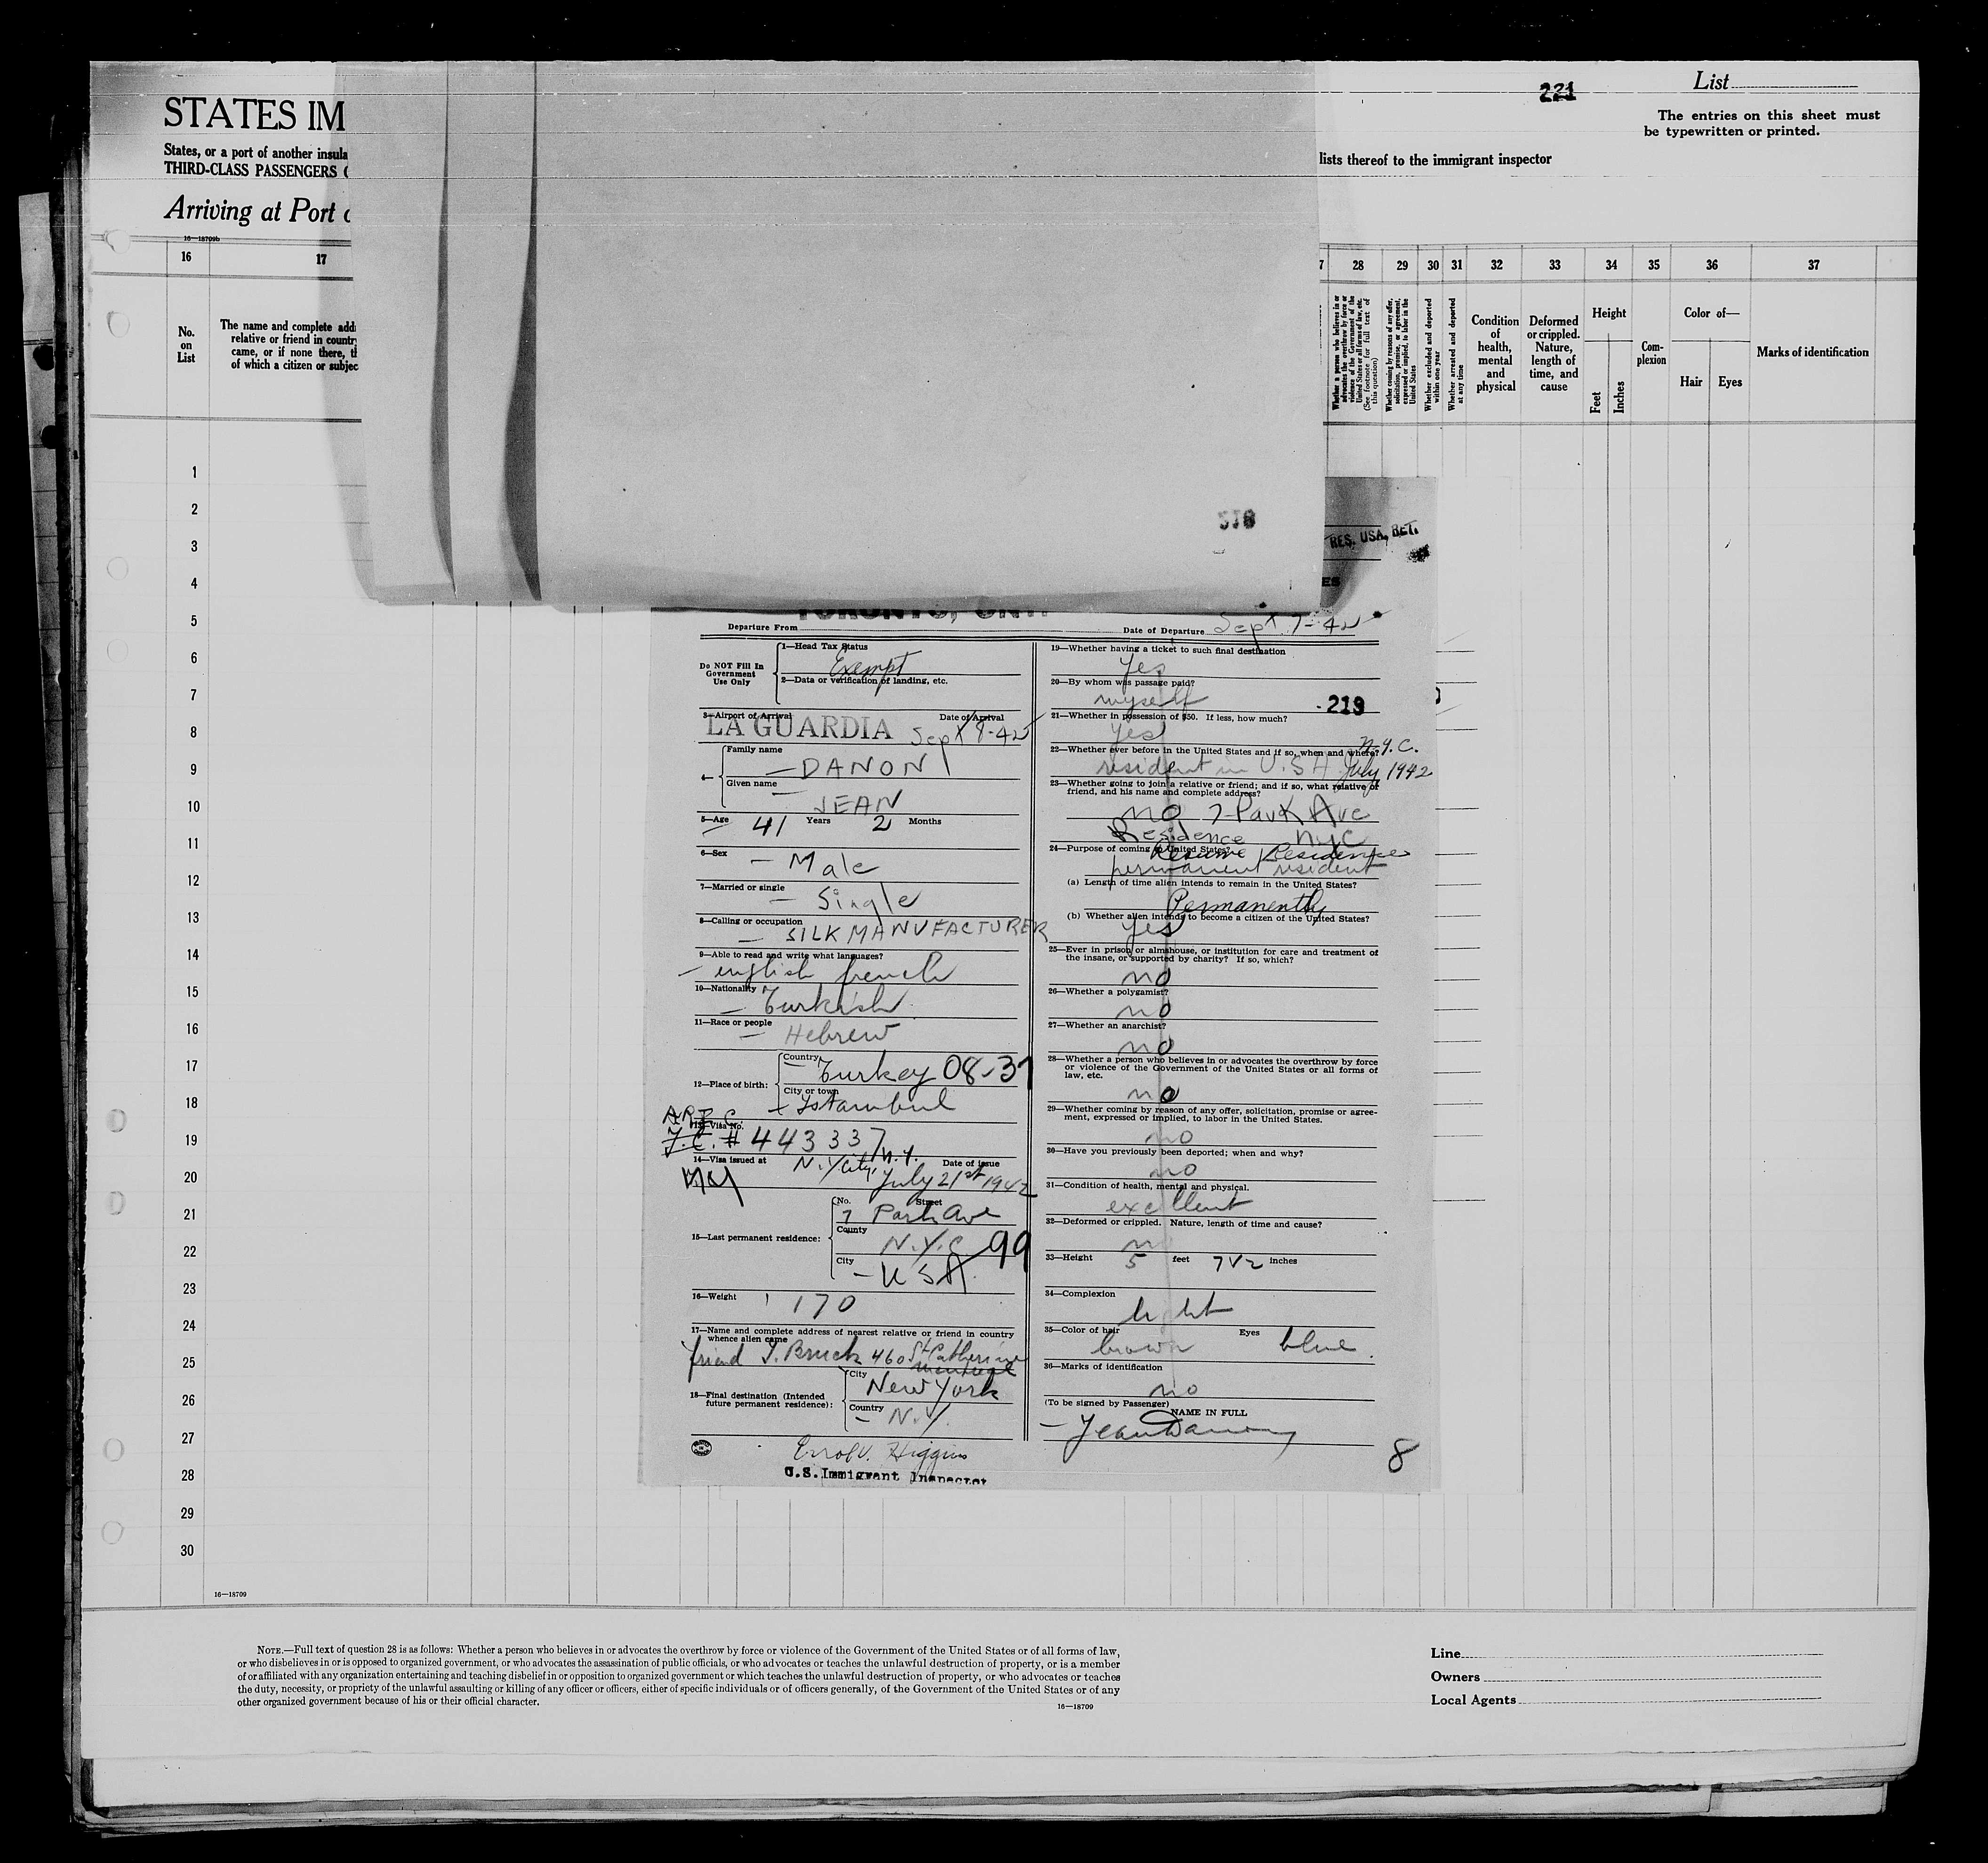 221
List
The entries on this sheet must
be typewritten or printed.
STATES IM
States, or a port of another insula
THIRD-CLASS PASSENGERS (
lists thereof to the immigrant inspector
Arriving at Port o
16—18709b
16
17
28
29
30
31
32
33
34
35
36
37
No.
on
List
The name and complete add
relative or friend in countr
came, or if none there, t
of which a citizen or subjec
Whether a person who believes in or
advocates the overthrow by force or
violence of the Government of the
United States or all forms of law, etc.
(See footnote for full text of
this question)
Whether coming by reasons of any offer,
solicitation, promise, or agreement,
expressed or implied, to labor in the
United States
Whether excluded and deported
within one year
Whether arrested and deported
at any time
Condition
of
health,
mental
and
physical
Deformed
or crippled.
Nature,
length of
time, and
cause
Height
Feet
Inches
Com-
plexion
Color of—
Hair
Eyes
Marks of identification
1
2
3
4
5
6
7
8
9
10
11
12
13
14
15
16
17
18
19
20
21
22
23
24
25
26
27
28
29
30
RES. USA, RET.
ES
TORONTO, ONT.
Departure From
Date of Departure Sept 7-42
Do NOT Fill In
Government
Use Only
1—Head Tax Status
Exempt
2—Data or verification of landing, etc.
3—Airport of Arrival
Date of Arrival
LA GUARDIA Sept 8-42
4—
Family name
DANON
Given name
JEAN
5—Age 41 Years 2 Months
6—Sex
Male
7—Married or single
Single
8—Calling or occupation
SILK MANUFACTURER
9—Able to read and write what languages?
english french
10—Nationality
Turkish
11—Race or people
Hebrew
12—Place of birth:
Country
Turkey 08-37
City or town
Istambul
13—Visa No.
# 443337
14—Visa issued at
Date of issue
N.Y City, N.Y.
July 21st 1942
15—Last permanent residence:
No.
Street
7 Park Ave
County
N.Y.C 99
City
USA
16—Weight
170
17—Name and complete address of nearest relative or friend in country
whence alien came
friend J. Bruck 460 St Catherine
montreal
18—Final destination (Intended
future permanent residence):
City
New York
Country
N.Y.
Errol V. Higgins
U.S. Immigrant Inspector
19—Whether having a ticket to such final destination
yes
20—By whom was passage paid?
myself
219
21—Whether in possession of $50. If less, how much?
yes
22—Whether ever before in the United States and if so, when and where?
N.Y.C.
resident in U.S.A. July 1942
23—Whether going to join a relative or friend; and if so, what relative or
friend, and his name and complete address?
no 7 Park Ave
Residence nyc
24—Purpose of coming to United States?
Resume Residence
permanent resident
(a) Length of time alien intends to remain in the United States?
Permanently
(b) Whether alien intends to become a citizen of the United States?
yes
25—Ever in prison or almshouse, or institution for care and treatment of
the insane, or supported by charity? If so, which?
no
26—Whether a polygamist?
no
27—Whether an anarchist?
no
28—Whether a person who believes in or advocates the overthrow by force
or violence of the Government of the United States or all forms of
law, etc.
no
29—Whether coming by reason of any offer, solicitation, promise or agree-
ment, expressed or implied, to labor in the United States.
no
30—Have you previously been deported; when and why?
no
31—Condition of health, mental and physical.
excellent
32—Deformed or crippled. Nature, length of time and cause?
no
33—Height 5 feet 7 1/2 inches
34—Complexion
light
35—Color of hair
Eyes
brown
blue
36—Marks of identification
no
(To be signed by Passenger)
NAME IN FULL
Jean Danon
8
16—18709
NOTE.—Full text of question 28 is as follows: Whether a person who believes in or advocates the overthrow by force or violence of the Government of the United States or of all forms of law,
or who disbelieves in or is opposed to organized government, or who advocates the assassination of public officials, or who advocates or teaches the unlawful destruction of property, or is a member
of or affiliated with any organization entertaining and teaching disbelief in or opposition to organized government or which teaches the unlawful destruction of property, or who advocates or teaches
the duty, necessity, or propriety of the unlawful assaulting or killing of any officer or officers, either of specific individuals or of officers generally, of the Government of the United States or of any
other organized government because of his or their official character.
16—18709
Line
Owners
Local Agents